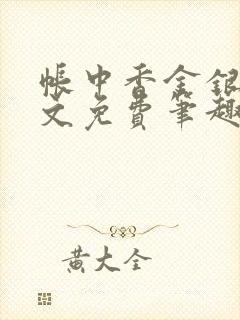 帐中香金银
文免费笔趣
黄大全